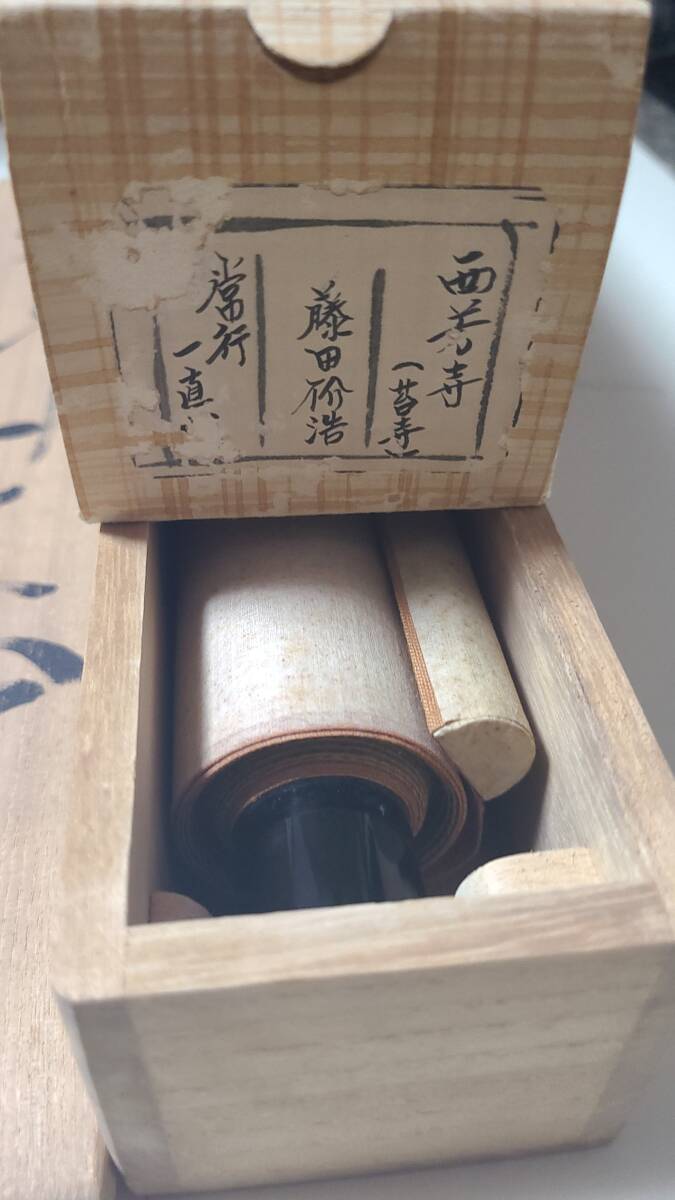 西芳寺
(苔寺)
藤田价浩
常行
一直